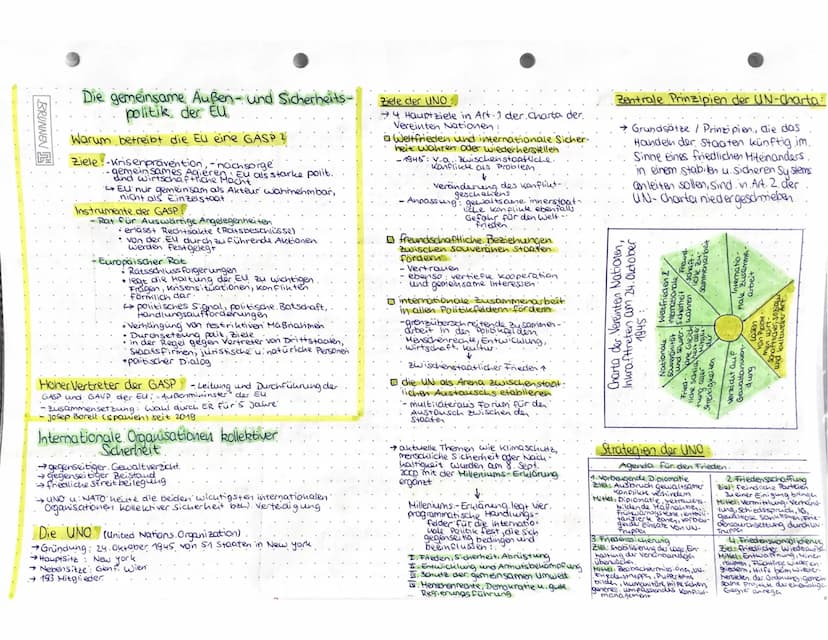 BRUNNEN
Die gemeinsame Außen- und Sicherheits-
politik der EU
Warum betreibt die EU eine GASP?
Ziele: - Krisenprävention, -nachsorge
- gemeinsames Agieren: EU als starke polit.
und wirtschaftliche Macht
↳ EU nur gemeinsam als Akteur wahrnehmbar,
nicht als Einzelstaat
Instrumente der GASP:
- Rat für Auswärtige Angelegenheiten
• erlässt Rechtsakte (Ratsbeschlüsse)
• von der EU durchzuführende Aktionen
werden festgelegt
- Europäischer Rat
• Ratsschlussfolgerungen
• legt die Haltung der EU zu wichtigen
Fragen, Krisensituationen, Konflikten
förmlich dar
↳ politisches Signal, politische Botschaft,
Handlungsaufforderungen
• Verhängung von restriktiven Maßnahmen
• Durchsetzung polit. Ziele
• in der Regel gegen Vertreter von Drittstaaten,
Staatsfirmen, juristische u. natürliche Personen
• politischer Dialog
Hoher Vertreter der GASP: - Leitung und Durchführung der
GASP und GSVP der EU; "Außenminister" der EU
- Zusammensetzung: Wahl durch ER für 5 Jahre
- Josep Borell (Spanien) seit 2019
Internationale Organisationen kollektiver
Sicherheit
→ gegenseitiger Gewaltverzicht
→ gegenseitiger Beistand
→ friedliche Streitbeilegung
→ UNO u. NATO: heute die beiden wichtigsten internationalen
Organisationen kollektiver Sicherheit bzw. Verteidigung
Die UNO (United Nations Organization)
→ Gründung: 24. Oktober 1945 von 51 Staaten in New York
→ Hauptsitz: New York
→ Nebensitze: Genf, Wien
→ 193 Mitglieder
Ziele der UNO:
→ 4 Hauptziele in Art. 1 der Charta der
Vereinten Nationen:
Weltfrieden und internationale Sicher-
heit wahren oder wiederherstellen
- 1945: v.a. zwischenstaatliche
Konflikte als Problem
↓
Veränderung des Konflikt-
geschehens
- Anpassung: gewaltsame innerstaat-
liche Konflikte ebenfalls
Gefahr für den Welt-
frieden
freundschaftliche Beziehungen
zwischen souveränen Staaten
fördern
- Vertrauen
- ebenso: vertiefte Kooperation
und gemeinsame Interessen
internationale Zusammenarbeit
in allen Politikfeldern fördern
- grenzüberschreitende Zusammen-
arbeit in den Politikfeldern
Menschenrechte, Entwicklung,
Wirtschaft, Kultur
↓
zwischenstaatlicher Frieden ↑
die UN als Arena zwischenstaat-
lichen Austauschs etablieren
- multilaterales Forum für den
Austausch zwischen den
Staaten
→ aktuelle Themen wie Klimaschutz,
menschliche Sicherheit oder Nach-
haltigkeit wurden am 8. Sept.
2000 mit der Milleniums-Erklärung
ergänzt
↓
Milleniums-Erklärung legt vier
programmatische Handlungs-
felder für die internatio-
nale Politik fest, die sich
gegenseitig bedingen und
beeinflussen:
I. Frieden, Sicherheit, Abrüstung
II. Entwicklung und Armutsbekämpfung
III. Schutz der gemeinsamen Umwelt
IV. Menschenrechte, Demokratie u. gute
Regierungsführung
Zentrale Prinzipien der UN-Charta:
→ Grundsätze / Prinzipien, die das
Handeln der Staaten künftig im
Sinne eines friedlichen Miteinanders,
in einem stabilen u. sicheren System
anleiten sollen, sind in Art. 2 der
UN-Charta niedergeschrieben
Charta der Vereinten Nationen,
Inkrafttreten am 24. Oktober
1945:
Weltfrieden &
internationale
Sicherheit
wahren
Freund-
schaftliche
Zusammenarbeit
Internatio-
nale Zusamme-
narbeit
Verzicht auf
Gewaltanwen-
dung
Strategien der UNO
Agenda für den Frieden
1. Vorbeugende Diplomatie
Ziel: Ausbruch gewaltsamer
Konflikte verhindern
Mittel: Diplomatie, vertrauens-
bildende Maßnahmen,
Frühwarnsysteme,
Zonen, vorbeu-
gende Einsatz von UN-
Truppen
2. Friedensschaffung
Ziel: Feindliche Parteien
zu einer Einigung bringen
Mittel: Vermittlung,
Schiedsspruch,
durch UN-
Truppen
3. Friedenssicherung
Ziel: Stabilisierung der Lage
Mittel:
management
4. Friedenskonsolidierung
Ziel:
Mittel: